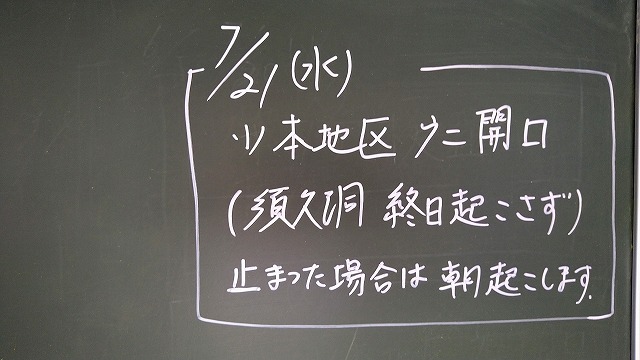 7/21(水)
小本地区 ウニ開口
(須久洞 終日起こさず)
止まった場合は朝起こします.